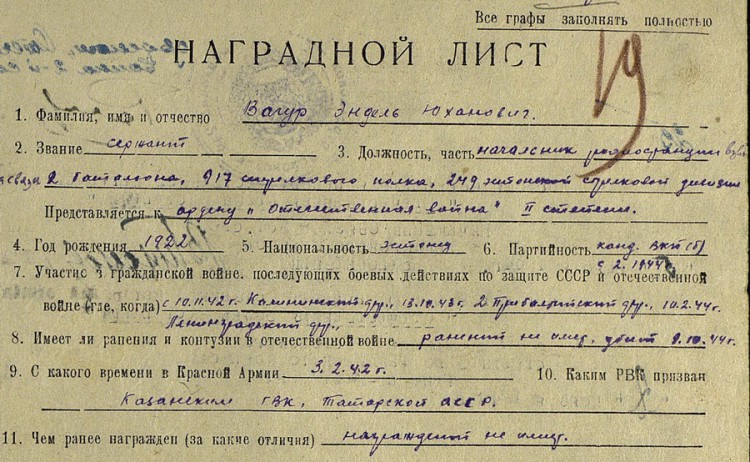 Все графы заполнять полностью
НАГРАДНОЙ ЛИСТ
19
1. Фамилия, имя и отчество Вагур Эндель Юханович.
2. Звание сержант 3. Должность, часть начальник радиостанции взво
да связи 2 батальона, 917 стрелкового полка, 249 эстонской стрелковой дивизии
Представляется к ордену "Отечественная война" II степени.
4. Год рождения 1922 5. Национальность эстонец 6. Партийность канд. ВКП(б)
с 2.1944
7. Участие в гражданской войне, последующих боевых действиях по защите СССР и отечественной
войне (где, когда) с 10.11.42г. Калининский фр., 13.10.43г. 2 Прибалтийский фр., 10.2.44г.
Ленинградский фр.,
8. Имеет ли ранения и контузии в отечественной войне ранений не имел, убит 9.10.44г.
9. С какого времени в Красной Армии 3.2.42г. 10. Каким РВК призван
Казанским ГВК, Татарской АССР.
11. Чем ранее награжден (за какие отличия) награждений не имел.